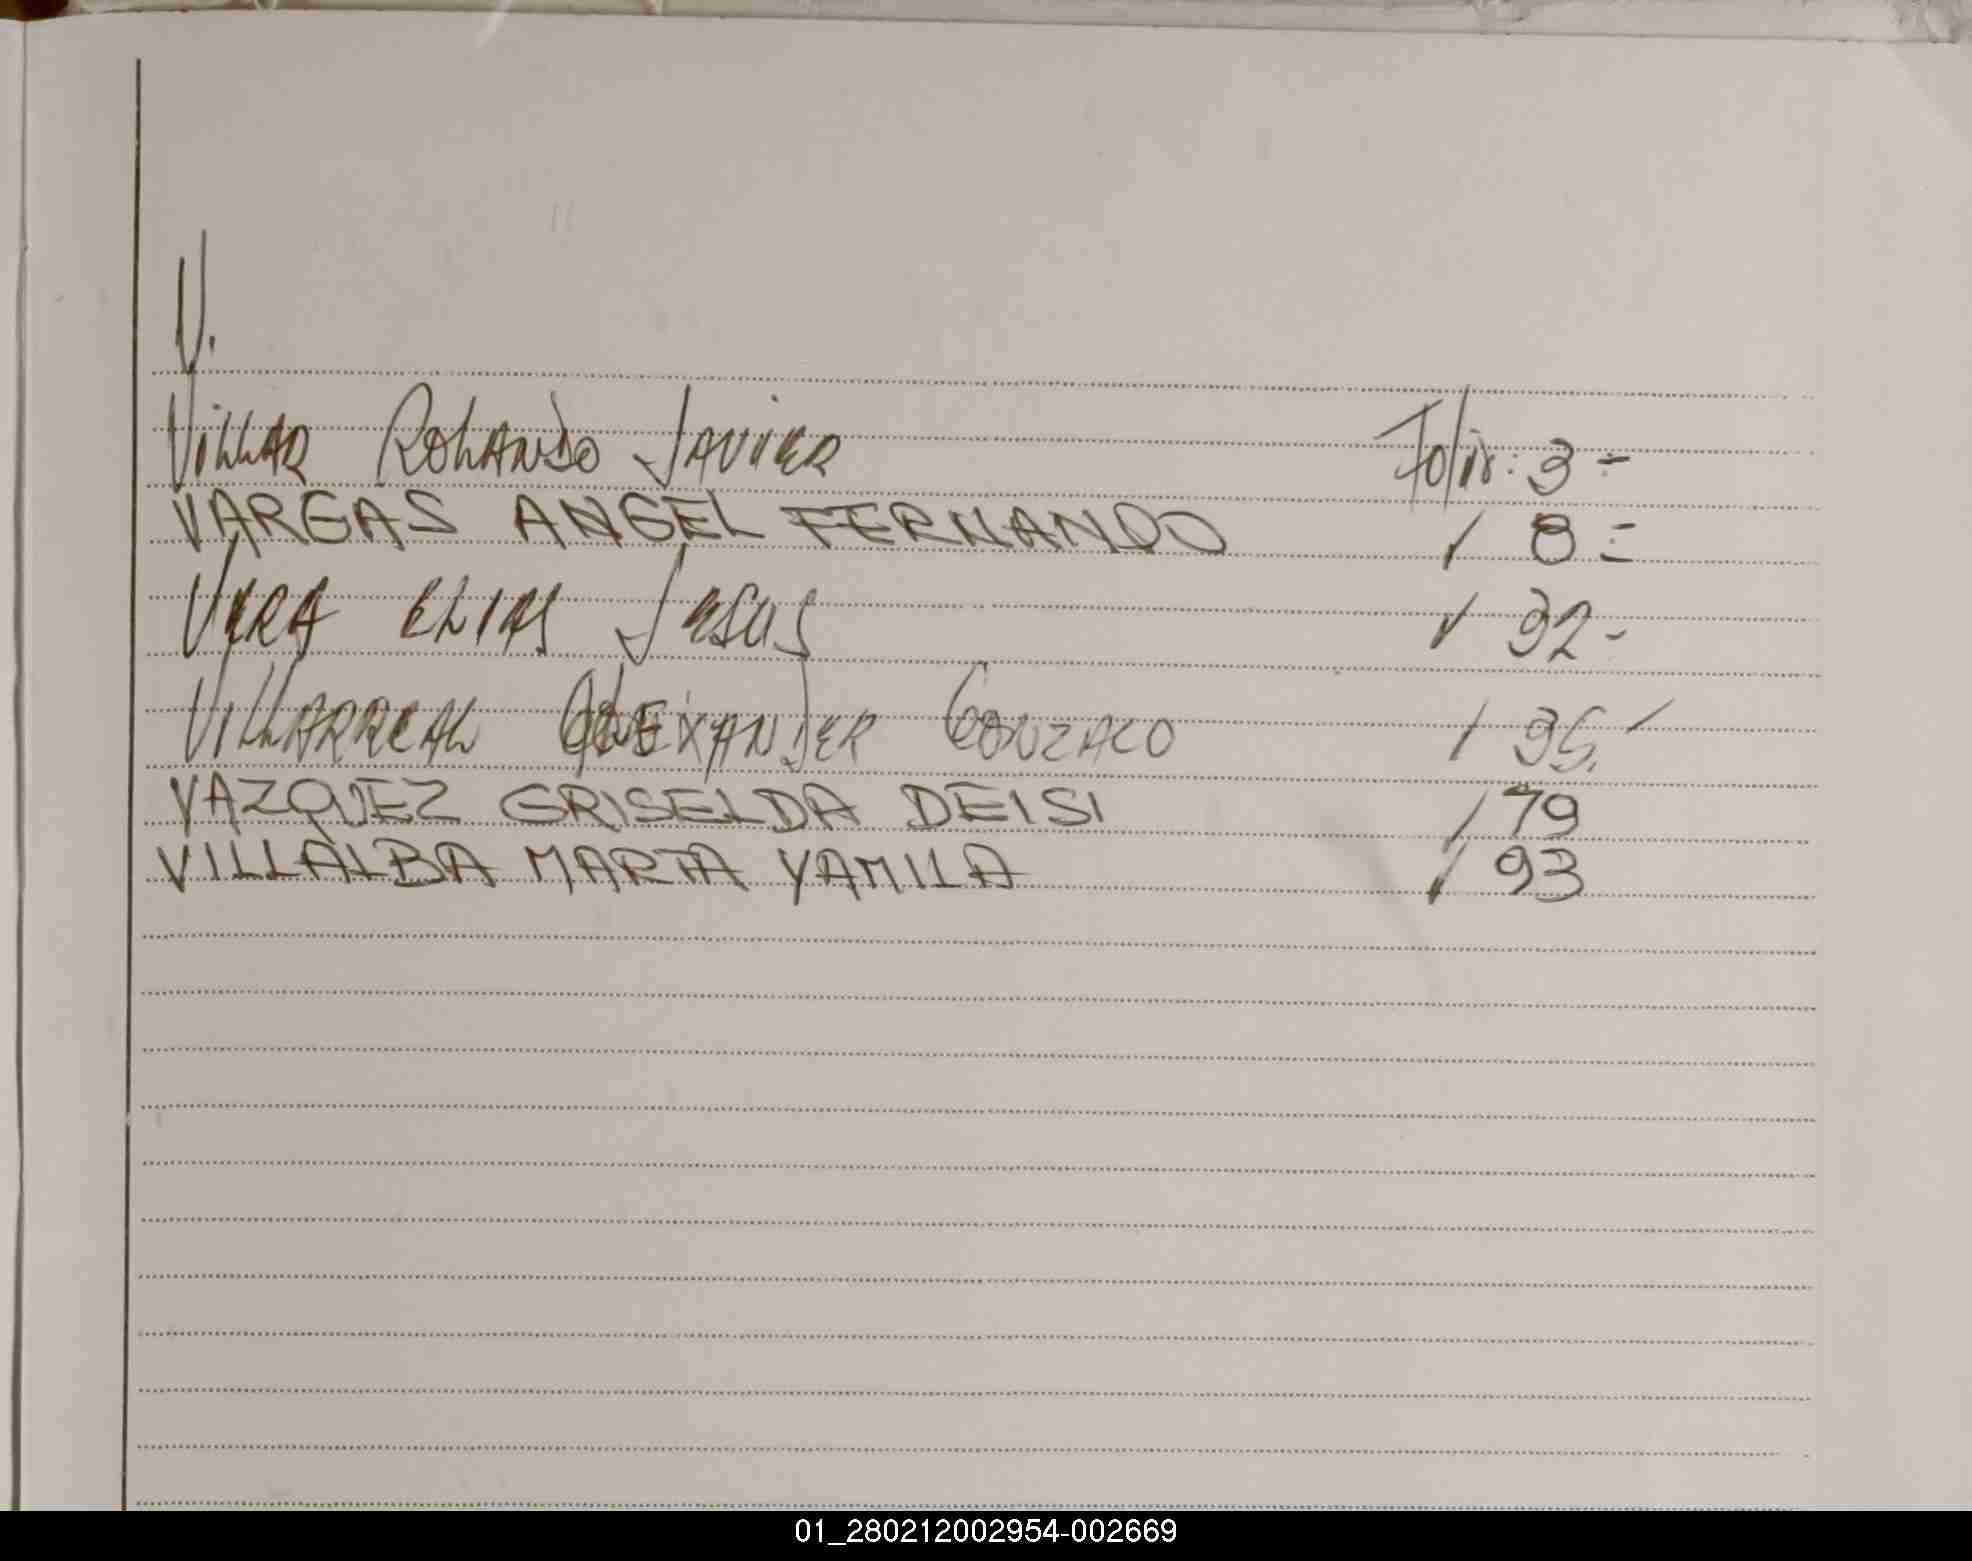 V.
Villar Rolando Javier Folio: 3=
VARGAS ANGEL FERNANDO / 8=
Vera Elias Jesus / 32-
Villarreal Alexander Gonzalo / 35.-
VAZQUEZ GRISELDA DEISI / 79
VILLALBA MARTA YAMILA / 93
01_280212002954-002669